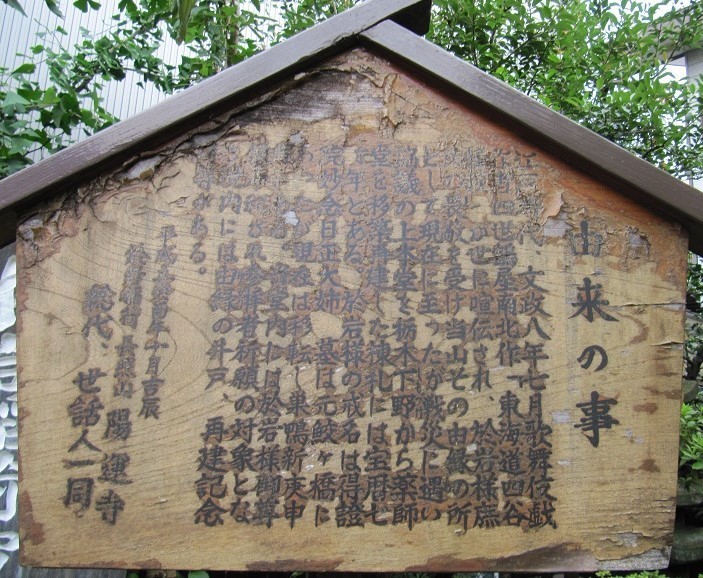 由来の事
江戸時代、文政八年七月歌舞伎戯
四世鶴屋南北作「東海道四谷
が世に喧伝され、於岩様庶
を受け当山その由縁の所
として現在に至ったが戦災に遇い
の上本堂を栃木下野から薬師
堂を移築再建した棟札には宝暦七
年とある。於岩様の戒名は得證
院妙念日正大姉、墓は元鮫ヶ橋に
現在は移転し巣鴨新庚申
堂内には於岩様御尊
され参拝者祈願の対象とな
内には由縁の井戸、再建記念
がある。
平成 年十月吉辰
長照山 陽運寺
総代、世話人一同